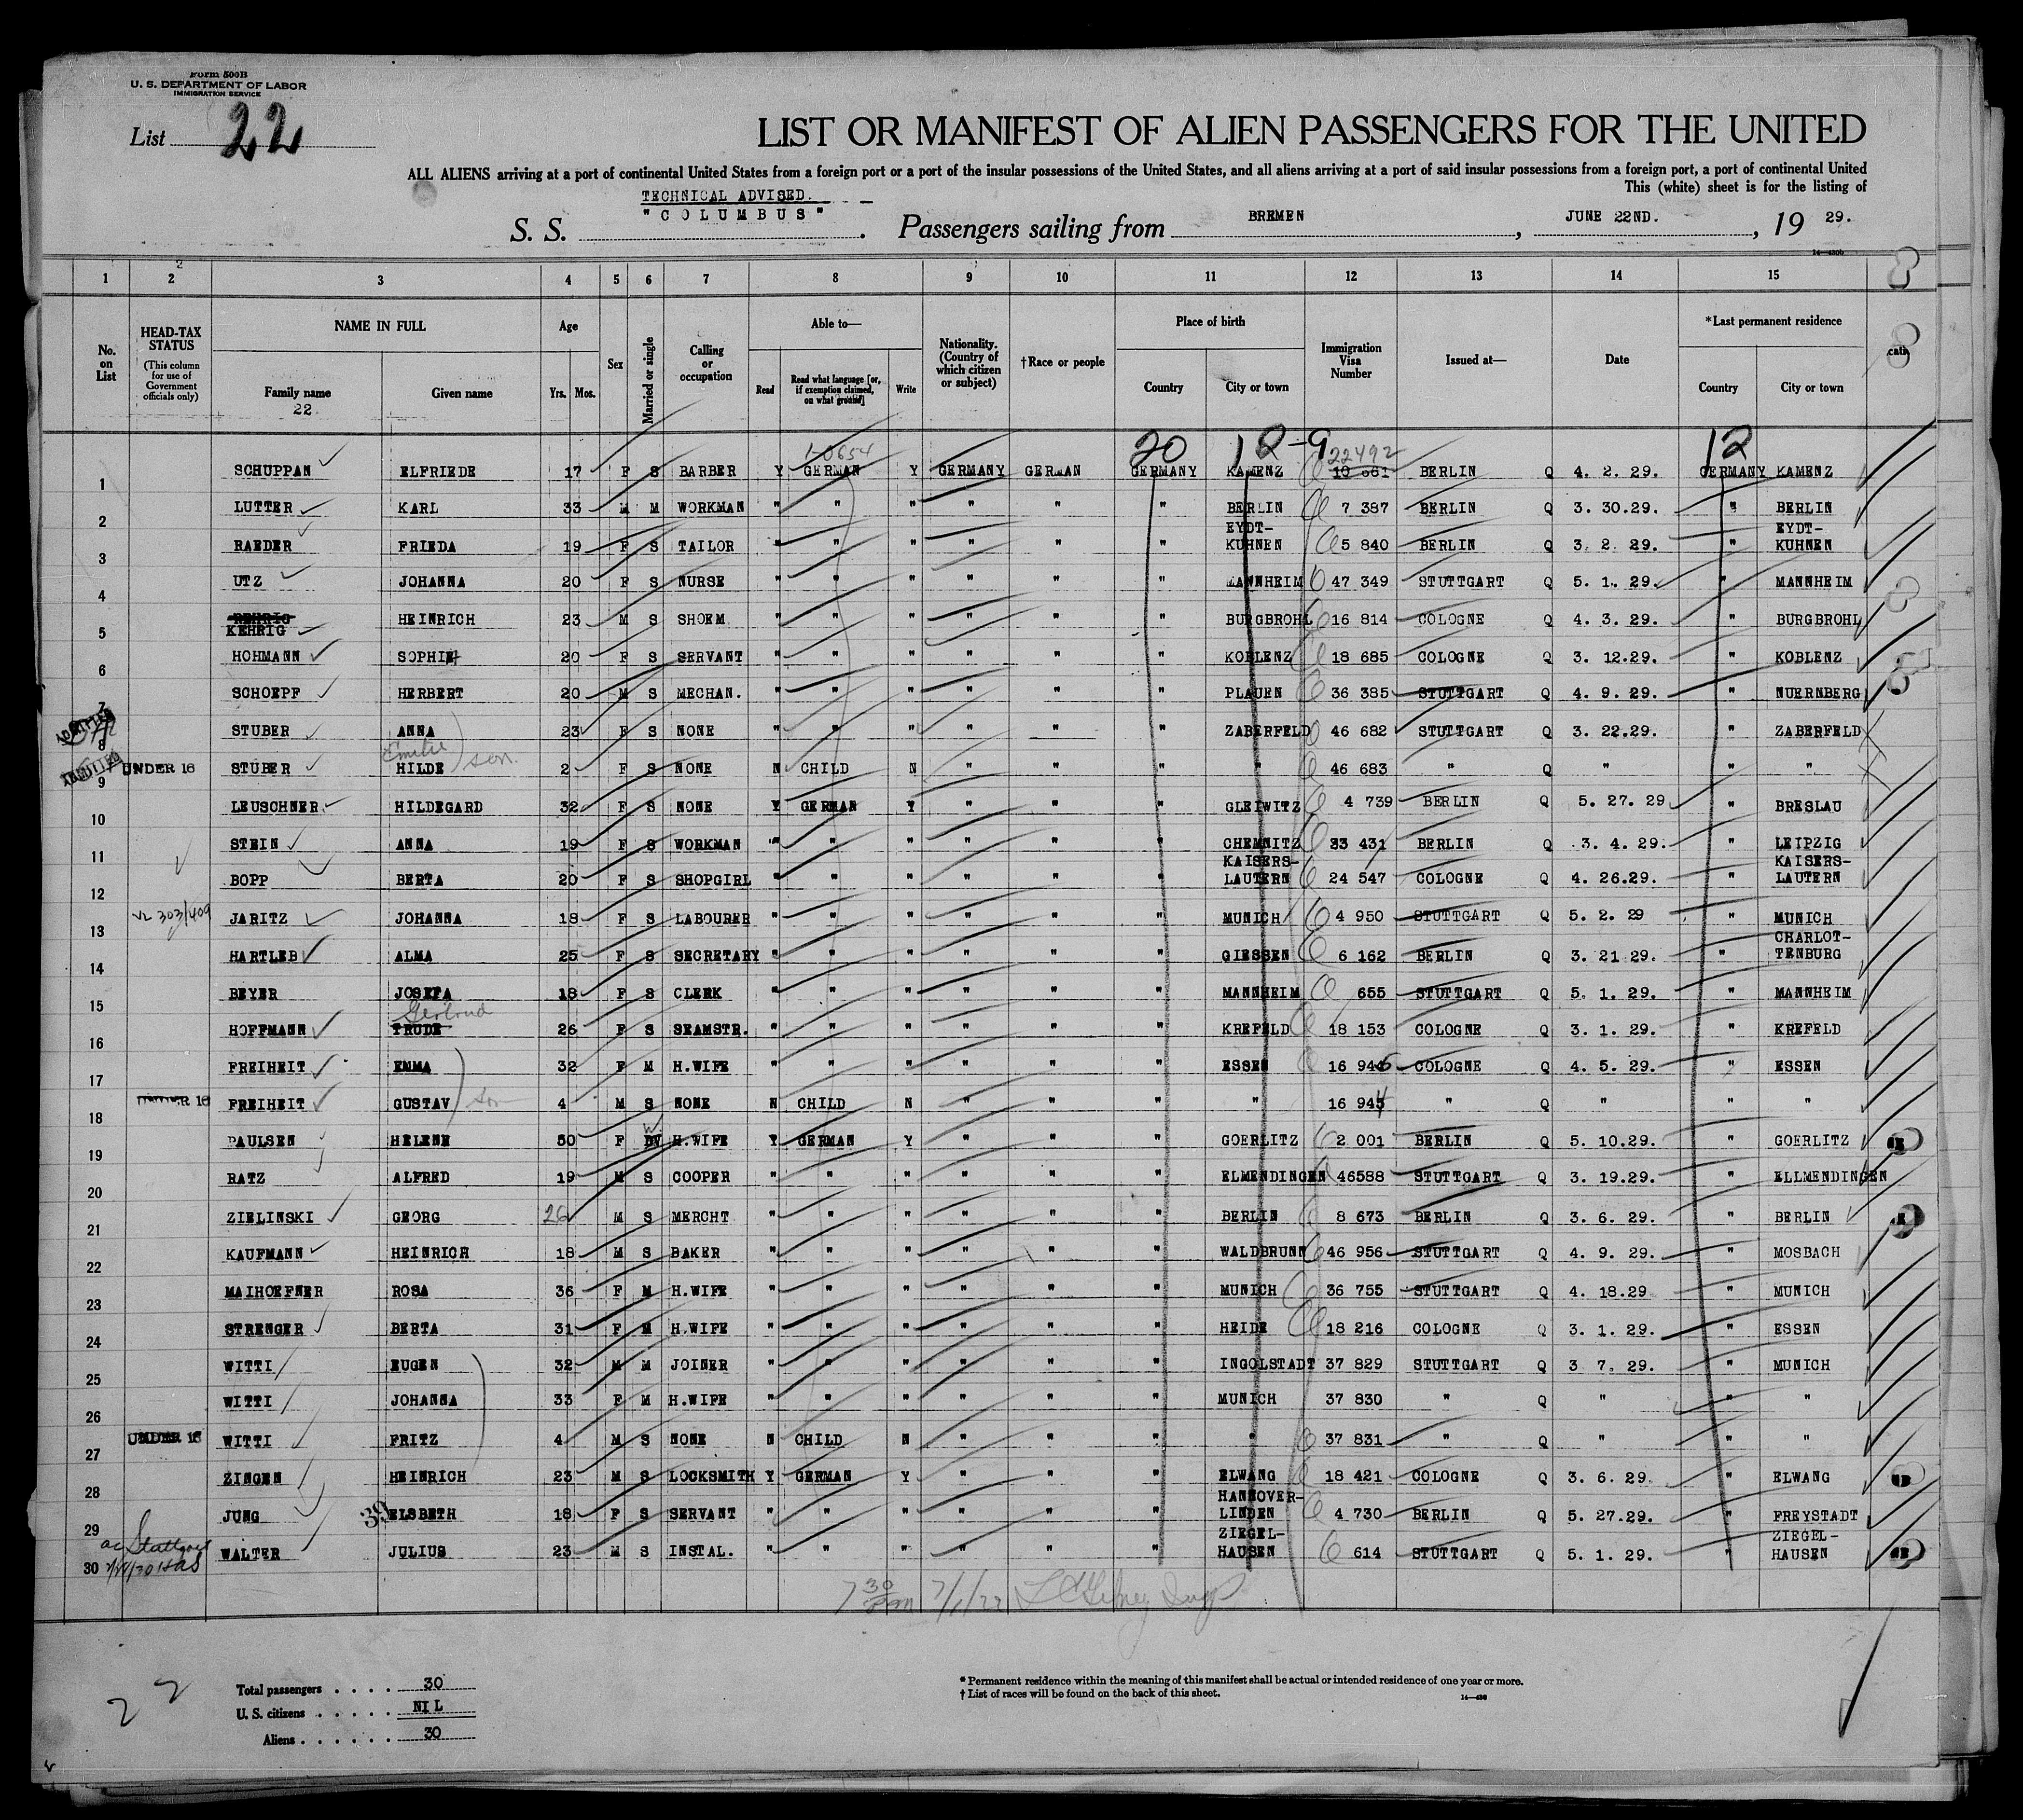 Form 500B
U. S. DEPARTMENT OF LABOR
IMMIGRATION SERVICE
List 22
LIST OR MANIFEST OF ALIEN PASSENGERS FOR THE UNITED
ALL ALIENS arriving at a port of continental United States from a foreign port or a port of the insular possessions of the United States, and all aliens arriving at a port of said insular possessions from a foreign port, a port of continental United
This (white) sheet is for the listing of
TECHNICAL ADVISED.
S. S. "COLUMBUS". Passengers sailing from BREMEN, JUNE 22ND., 19 29.
1 2 3 4 5 6 7 8 9 10 11 12 13 14 15
No. on List
HEAD-TAX STATUS (This column for use of Government officials only)
NAME IN FULL
Family name
22
Given name
Age
Yrs. Mos.
Sex
Married or single
Calling or occupation
Able to—
Read
Read what language [or, if exemption claimed, on what ground]
Write
Nationality. (Country of which citizen or subject)
†Race or people
Place of birth
Country
City or town
Immigration Visa Number
Issued at—
Date
*Last permanent residence
Country
City or town
20 12-9 22492 12
1 SCHUPPAN ELFRIEDE 17 F S BARBER Y GERMAN Y GERMANY GERMAN GERMANY KAMENZ BERLIN Q 4. 2. 29. GERMANY KAMENZ
2 LUTTER KARL 33 M M WORKMAN " " " " " " BERLIN 7 387 BERLIN Q 3. 30.29. " BERLIN
3 RAEDER FRIEDA 19 F S TAILOR " " " " " " EYDT-KUHNEN 5 840 BERLIN Q 3. 2. 29. " EYDT-KUHNEN
4 UTZ JOHANNA 20 F S NURSE " " " " " " MANNHEIM 47 349 STUTTGART Q 5. 1. 29. " MANNHEIM
5 REHRIG KEHRIG HEINRICH 23 M S SHOEM " " " " " " BURGBROHL 16 814 COLOGNE Q 4. 3. 29. " BURGBROHL
6 HOHMANN SOPHIE 20 F S SERVANT " " " " " " KOBLENZ 18 685 COLOGNE Q 3. 12.29. " KOBLENZ
7 SCHOEPF HERBERT 20 M S MECHAN. " " " " " " PLAUEN 36 385 STUTTGART Q 4. 9. 29. " NUERNBERG
ADMITTED 8 STUBER ANNA 23 F S NONE " " " " " " ZABERFELD 46 682 STUTTGART Q 3. 22.29. " ZABERFELD
ADMITTED 9 UNDER 16 STUBER Emilie HILDE 2 F S NONE N CHILD N " " " " 46 683 " Q " " "
10 LEUSCHNER HILDEGARD 32 F S NONE Y GERMAN Y " " " GLEIWITZ 4 739 BERLIN Q 5. 27. 29 " BRESLAU
11 STEIN ANNA 19 F S WORKMAN " " " " " " CHEMNITZ 33 431 BERLIN Q 3. 4. 29. " LEIPZIG
12 BOPP BERTA 20 F S SHOPGIRL " " " " " " KAISERS-LAUTERN 24 547 COLOGNE Q 4. 26.29. " KAISERS-LAUTERN
13 JARITZ JOHANNA 18 F S LABOURER " " " " " " MUNICH 4 950 STUTTGART Q 5. 2. 29 " MUNICH
14 HARTLEB ALMA 25 F S SECRETARY " " " " " " GIESSEN 6 162 BERLIN Q 3. 21 29. " CHARLOT-TENBURG
15 BEYER JOSEFA 18 F S CLERK " " " " " " MANNHEIM 655 STUTTGART Q 5. 1. 29. " MANNHEIM
16 HOFFMANN Gertrud TRUDE 26 F S SEAMSTR. " " " " " " KREFELD 18 153 COLOGNE Q 3. 1. 29. " KREFELD
17 FREIHEIT EMMA 32 F M H.WIFE " " " " " " ESSEN 16 945 COLOGNE Q 4. 5. 29. " ESSEN
18 FREIHEIT GUSTAV 4 M S NONE N CHILD N " " " " 16 944 " Q " " "
19 PAULSEN HELENE 50 F W H.WIFE Y GERMAN Y " " " GOERLITZ 2 001 BERLIN Q 5. 10.29. " GOERLITZ
20 RATZ ALFRED 19 M S COOPER " " " " " " ELMENDINGEN 46588 STUTTGART Q 3. 19.29. " ELLMENDINGEN
21 ZIELINSKI GEORG 26 M S MERCHT " " " " " " BERLIN 8 673 BERLIN Q 3. 6. 29. " BERLIN
22 KAUFMANN HEINRICH 18 M S BAKER " " " " " " WALDBRUNN 46 956 STUTTGART Q 4. 9. 29. " MOSBACH
23 MAIHOEFNER ROSA 36 F M H.WIFE " " " " " " MUNICH 36 755 STUTTGART Q 4. 18.29 " MUNICH
24 STRENGER BERTA 31 F M H.WIFE " " " " " " HEIDE 18 216 COLOGNE Q 3. 1. 29. " ESSEN
25 WITTI EUGEN 32 M M JOINER " " " " " " INGOLSTADT 37 829 STUTTGART Q 3 7. 29. " MUNICH
26 WITTI JOHANNA 33 F M H.WIFE " " " " " " MUNICH 37 830 " Q " " "
27 UNDER 16 WITTI FRITZ 4 M S NONE N CHILD N " " " " 37 831 " Q " " "
28 ZINGEN HEINRICH 23 M S LOCKSMITH Y GERMAN Y " " " ELWANG 18 421 COLOGNE Q 3. 6. 29. " ELWANG
29 JUNG 39 ELSBETH 18 F S SERVANT " " " " " " HANNOVER-LINDEN 4 730 BERLIN Q 5. 27.29. " FREYSTADT
30 WALTER JULIUS 23 M S INSTAL. " " " " " " ZIEGEL-HAUSEN 614 STUTTGART Q 5. 1. 29. " ZIEGEL-HAUSEN
22
Total passengers . . . . 30
U. S. citizens . . . . . NIL
Aliens . . . . . . 30
* Permanent residence within the meaning of this manifest shall be actual or intended residence of one year or more.
† List of races will be found on the back of this sheet.